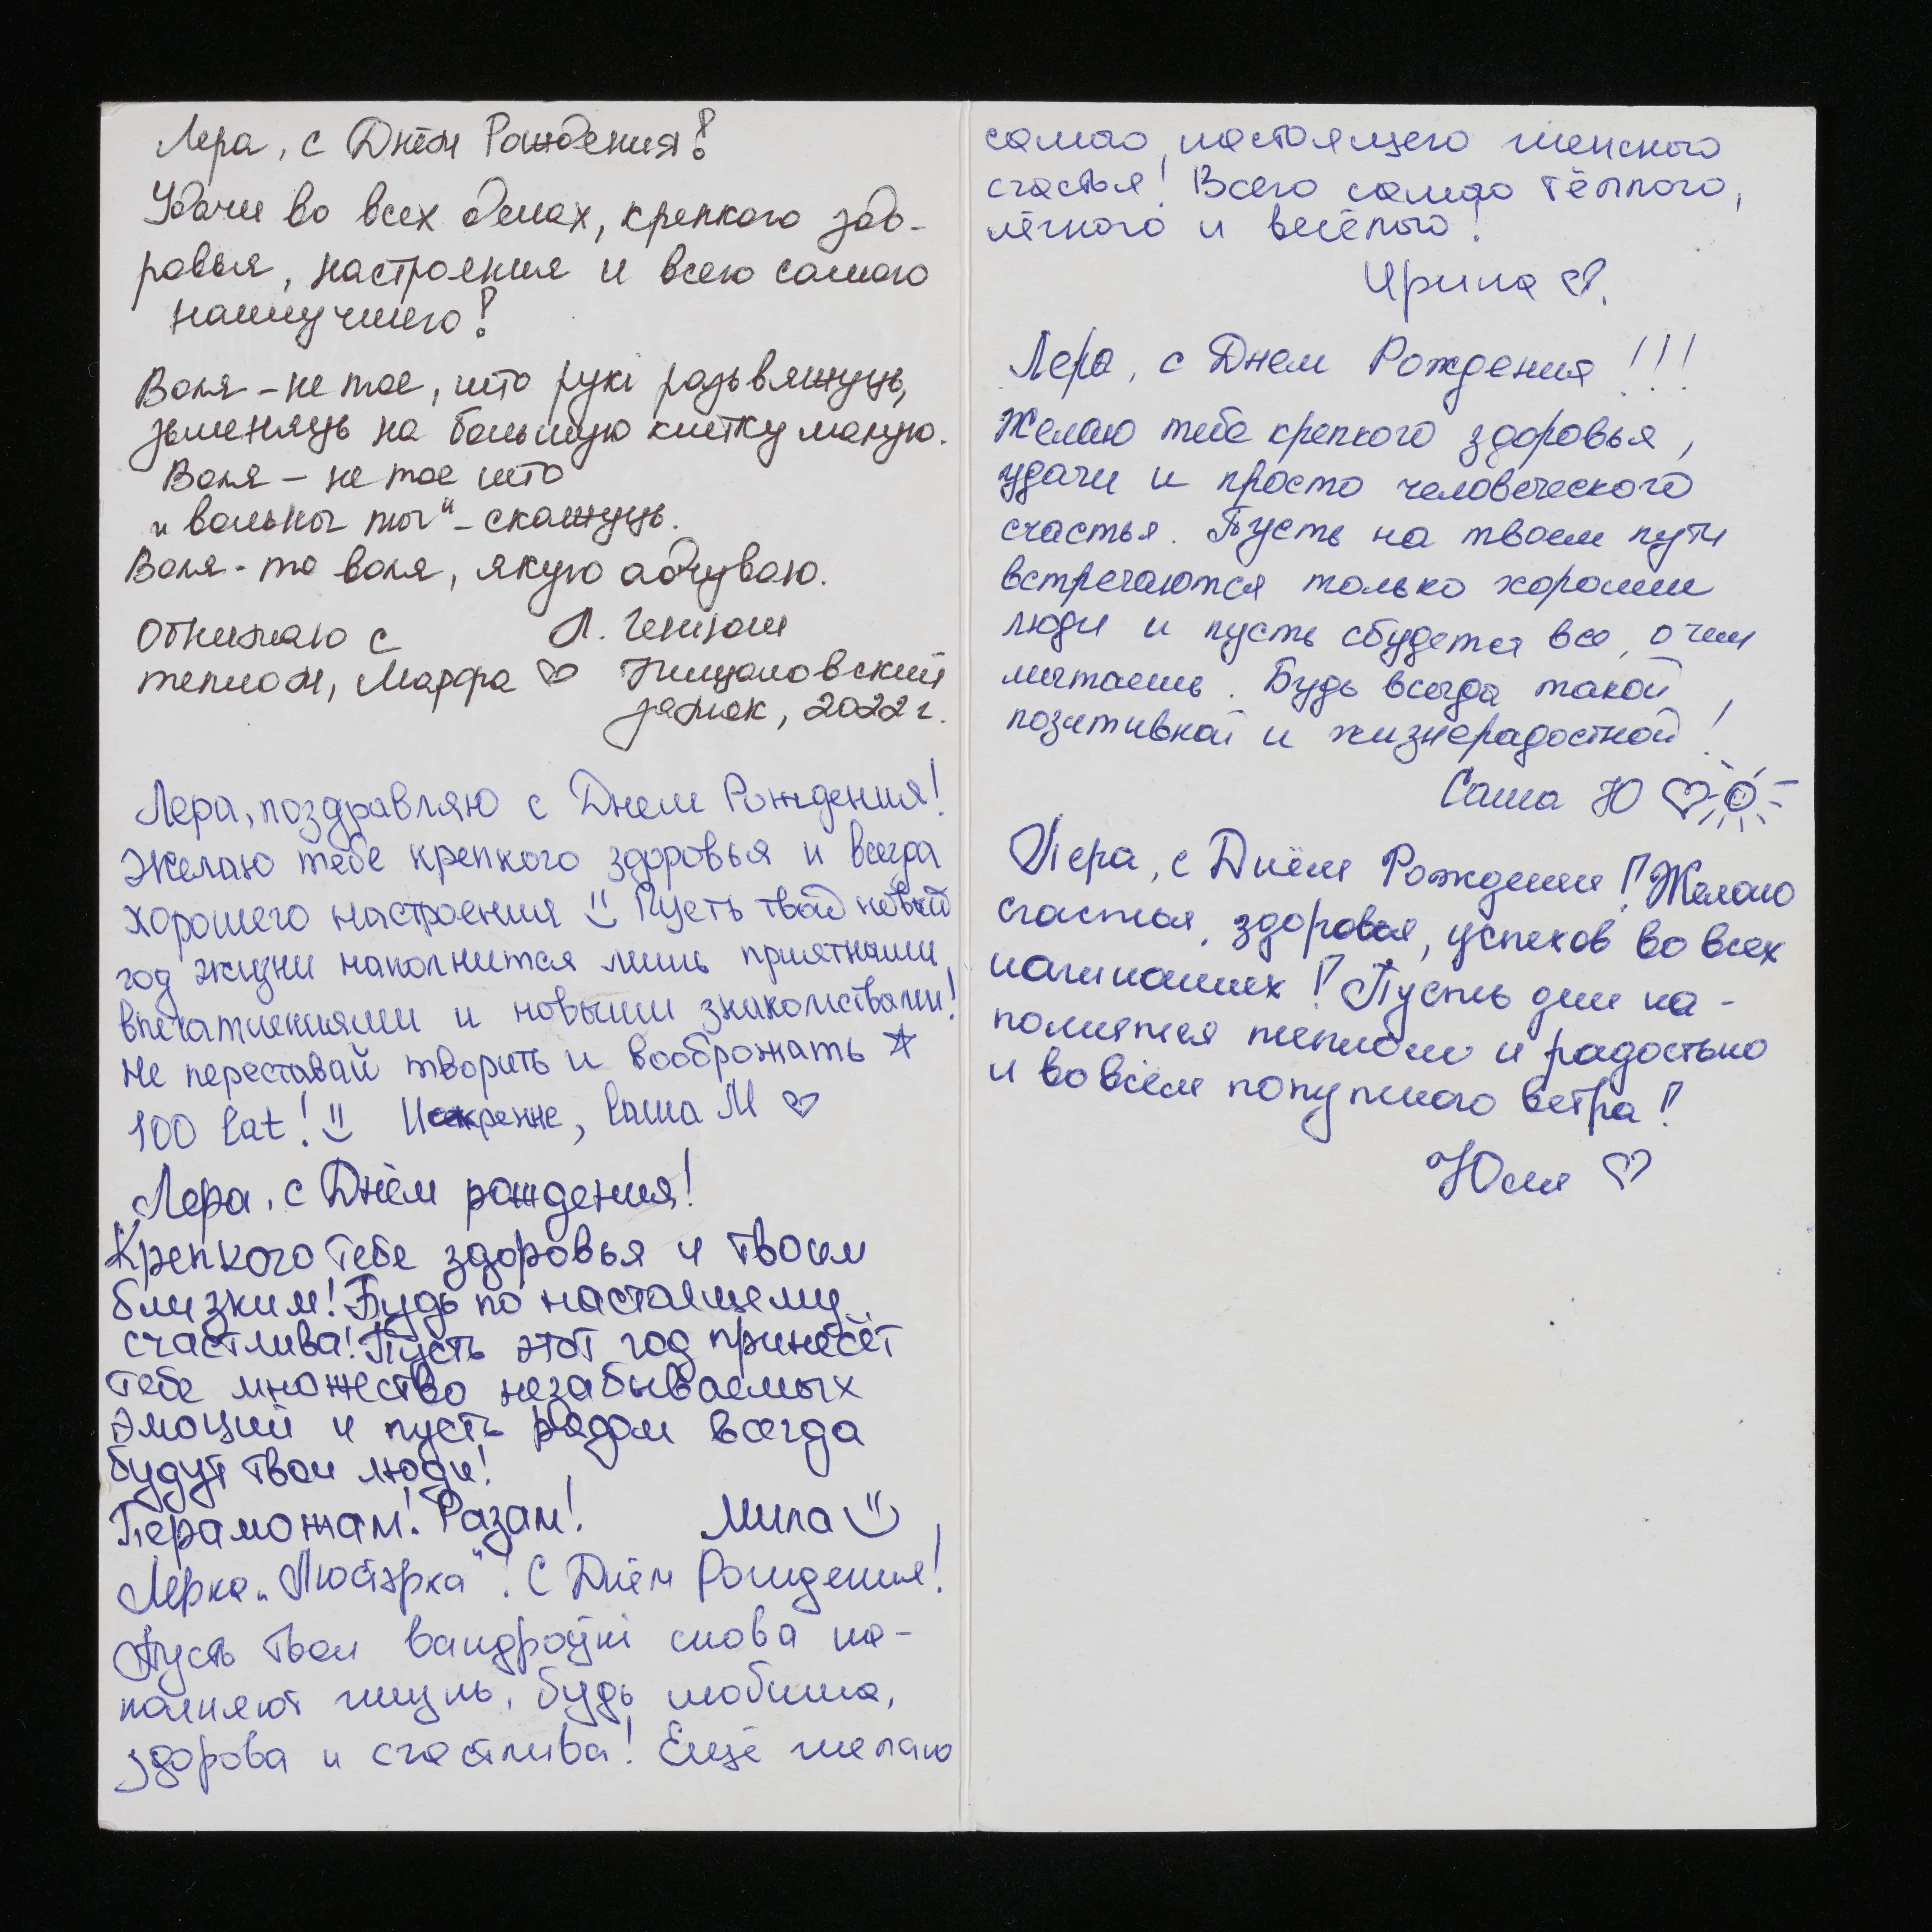 Лера, с Днём Рождения!
Удачи во всех делах, крепкого здо-
ровья, настроения и всего самого
наилучшего!
Воля – не тое, што рукі разьвяжуць,
зьменяць на большую клетку малую.
Воля – не тое што
„вольны ты" – скажуць.
Воля - то воля, якую адчуваю.
Обнимаю с Л. Геніюш
теплом, Марфа ♡ Пищаловский
замок, 2022 г.
Лера, поздравляю с Днем Рождения!
Желаю тебе крепкого здоровья и всегда
хорошего настроения Пусть твой новый
год жизни наполнится лишь приятными
впечатлениями и новыми знакомствами!
Не переставай творить и вооброжать ☆
100 lat! Искренне, Саша М ♡
Лера, с Днём рождения!
Крепкого тебе здоровья и твоим
близким! Будь по настоящему
счастлива! Пусть этот год принесёт
тебе множество незабываемых
эмоций и пусть рядом всегда
будут твои люди!
Пераможам! Разам! Мила
Лерка „Лютэрка"! С Днём Рождения!
Пусть твои вандроўкі снова на-
полняют жизнь, будь любима,
здорова и счастлива! Ещё желаю
самого настоящего женского
счастья! Всего самого тёплого,
лёгкого и весёлого!
Ирина ♡.
Лера, с Днем Рождения!!!
Желаю тебе крепкого здоровья,
удачи и просто человеческого
счастья. Пусть на твоем пути
встречаются только хорошие
люди и пусть сбудется все, о чем
мечтаешь. Будь всегда такой
позитивной и жизнерадостной!
Саша Ю ♡
Лера, с Днём Рождения! Желаю
счастья, здоровья, успехов во всех
начинаниях! Пусть дни на-
полнятся теплом и радостью
и во всём попутного ветра!
Юля ♡